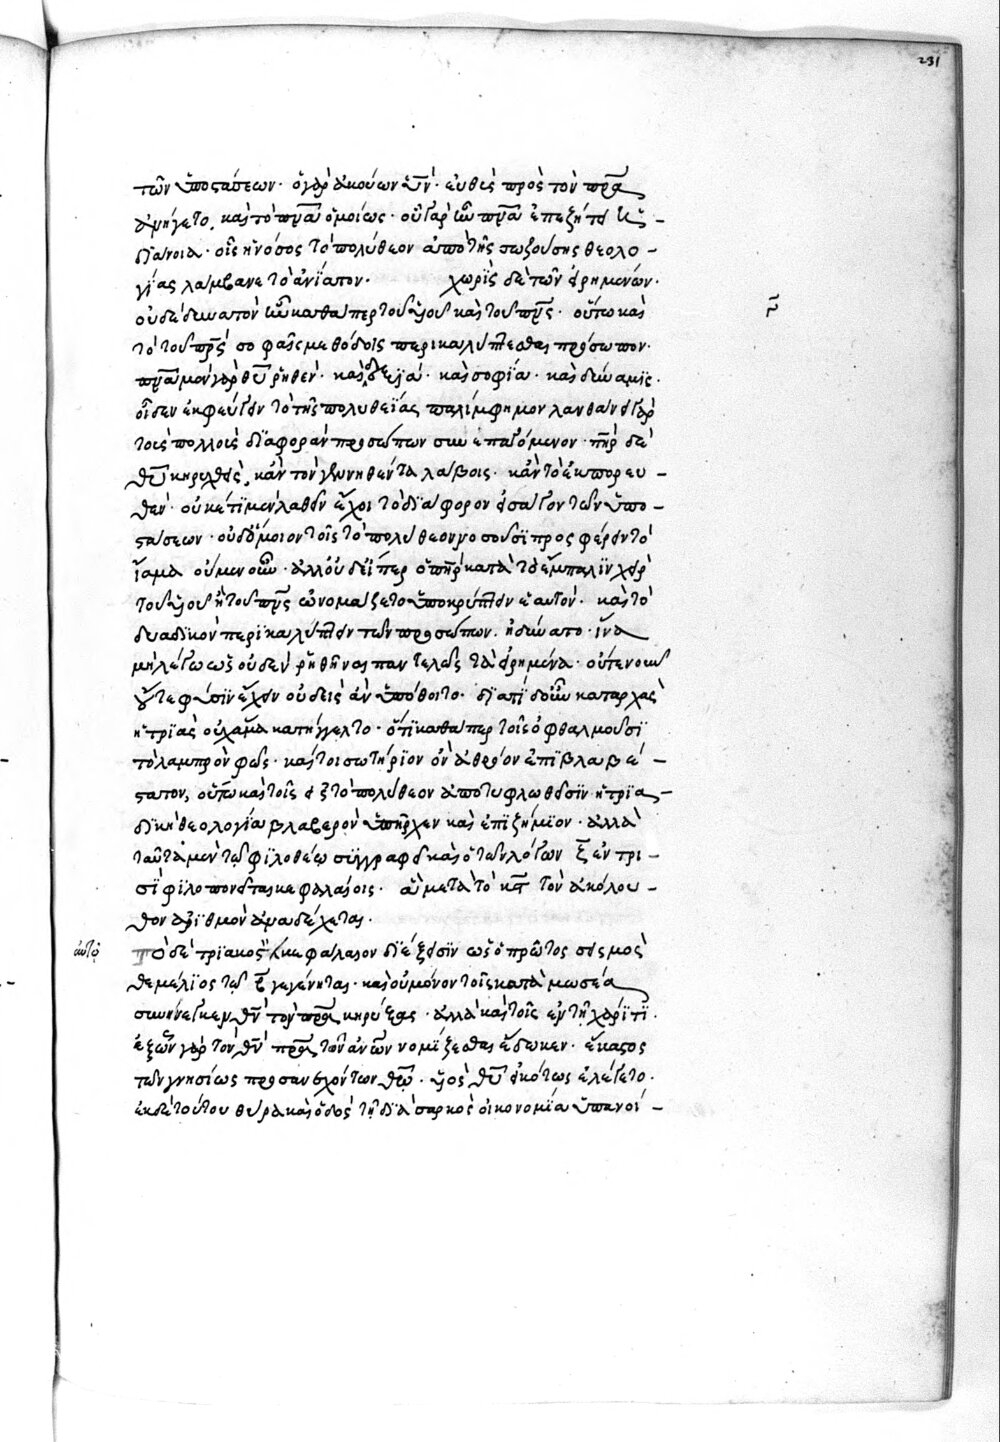 231
τῶν ὑποστάσεων · ὁ γὰρ ἀκούων υἱόν · εὐθὺς πρὸς τὸν πρα
ἀνήγετο, καὶ τὸ πνα ὁμοίως · οὗ γὰρ ὦ πνα ἐπεζήτει
διάνοια · οἷς ἡ νόσος τὸ πολύθεον ἀπὸ τῆς σωζούσης θεολο –
γίας λαμβάνει τὸ ἀνίατον · χωρὶς δὲ τῶν εἰρημένων ·
οὐδὲ δυνατὸν ἦν καθάπερ τοῦ υἱοῦ καὶ τοῦ πνς · οὕτω καὶ
τὸ τοῦ πρς σοφαῖς μεθόδοις περικαλύπτεσθαι πρόσωπον ·
πνα μὲν γὰρ θυ ῥηθέν · καὶ δεξιά · καὶ σοφία · καὶ δύναμις ·
οἶδεν ἐκφεύγειν τὸ τῆς πολυθεΐας παλίμφημον λανθάνει γὰρ
τοῖς πολλοῖς διαφορὰν προσώπων συνεπαγόμενον · πηρ δὲ
θυ κηρυχθεὶς, κἂν τὸν γεννηθέντα λάβοις · κἂν τὸ ἐκπορευ –
θέν · οὐκέτι μὲν λαθεῖν ἔχοι τὸ διάφορον εἰσάγον τῶν ὑπο –
στάσεων · οὐδ' ὅμοιον τοῖς τὸ πολύθεον νοσοῦσι προσφέρειν τὸ
ἴαμα οὐμενοῦν · ἀλλ' οὐδ' εἴπερ ὁ πηρ κατὰ τὸ ἔμπαλιν χεὶρ
τοῦ υἱοῦ ἢ τοῦ πνς ὠνομάζετο ὑποκρύπτειν ἑαυτόν · καὶ τὸ
δυαδικὸν περικαλύπτειν τῶν προσώπων · ἠδύνατο · ἵνα
μὴ λέγω ὡς οὐδὲν ῥηθῆναι παντελῶς τὰ εἰρημένα · οὔτε νοῦν
οὔτε φύσιν ἔχειν οὐδεὶς ἂν ὑπόθοιτο · διατί δ' οὖν καταρχὰς
ἡ τριὰς οὐχ ἅμα κατήγγελτο · ὅτι καθάπερ τοῖς ὀφθαλμοῦσι
τὸ λαμπρὸν φῶς · καίτοι σωτήριον ὂν ἀθρόον ἐπιβλαβέ –
στατον, οὕτω καὶ τοῖς εἰς τὸ πολύθεον ἀποτυφλωθεῖσιν ἡ τρια –
δικὴ θεολογία βλαβερὸν ὑπῆρχεν καὶ ἐπιζήμιον · ἀλλὰ
ταῦτα μὲν τῷ φιλοθέῳ συγγραφεῖ καὶ ὁ τῶν λόγων ἐν τρι –
σὶ φιλοπονεῖται κεφαλαίοις · ἃ μετὰ τὸ κατὰ τὸν ἀκόλου –
θον ἀριθμὸν ἀναδέχεται ·
Τὸ δὲ τριακοστὸν κεφάλαιον διέξεισιν ὡς ὁ πρῶτος σεισμὸς
θεμέλιος τῷ γεγένηται · καὶ οὐ μόνον τοῖς κατὰ μωσέα
συνήνεγκεν θν τὸν πρα κηρύξας · ἀλλὰ καὶ τοῖς ἐν τῇ χάριτι ·
ἐξ ὧν γὰρ τὸν θν πρα τῶν ανων νομίζεσθαι ἔδωκεν · ἕκαστος
τῶν γνησίως προσανεχόντων θω · υἱὸς θυ εἰκότως ἐλέγετο ·
ἐκ δὲ τούτου θύρα καὶ ὁδὸς τῇ διὰ σαρκὸς οἰκονομίᾳ ὑπανοί –